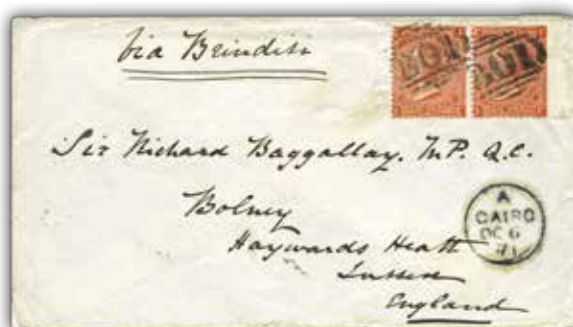 via Brindisi
B01
B01
Sir Richard Baggallay. M.P. Q.C.
Bolney
Haywards Heath
Sussex
England
A
CAIRO
DC 6
71